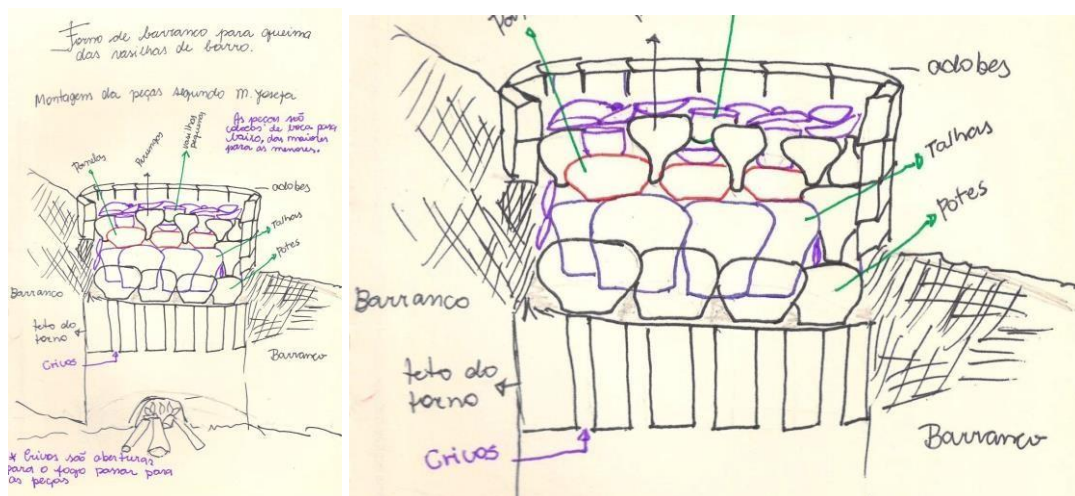 Forno de barranco para queima
das vasilhas de barro.
Montagem da peças segundo M. Josefa
As peças são
de boca para
baixo, das maiores
para as menores.
Panelas
vasilhas
pequenas
adobes
Talhas
Potes
Barranco
teto do
forno
Crivos
Barranco
* Crivos são aberturas
para o fogo passar para
as peças
adobes
Talhas
Potes
Barranco
teto do
forno
Crivos
Barranco